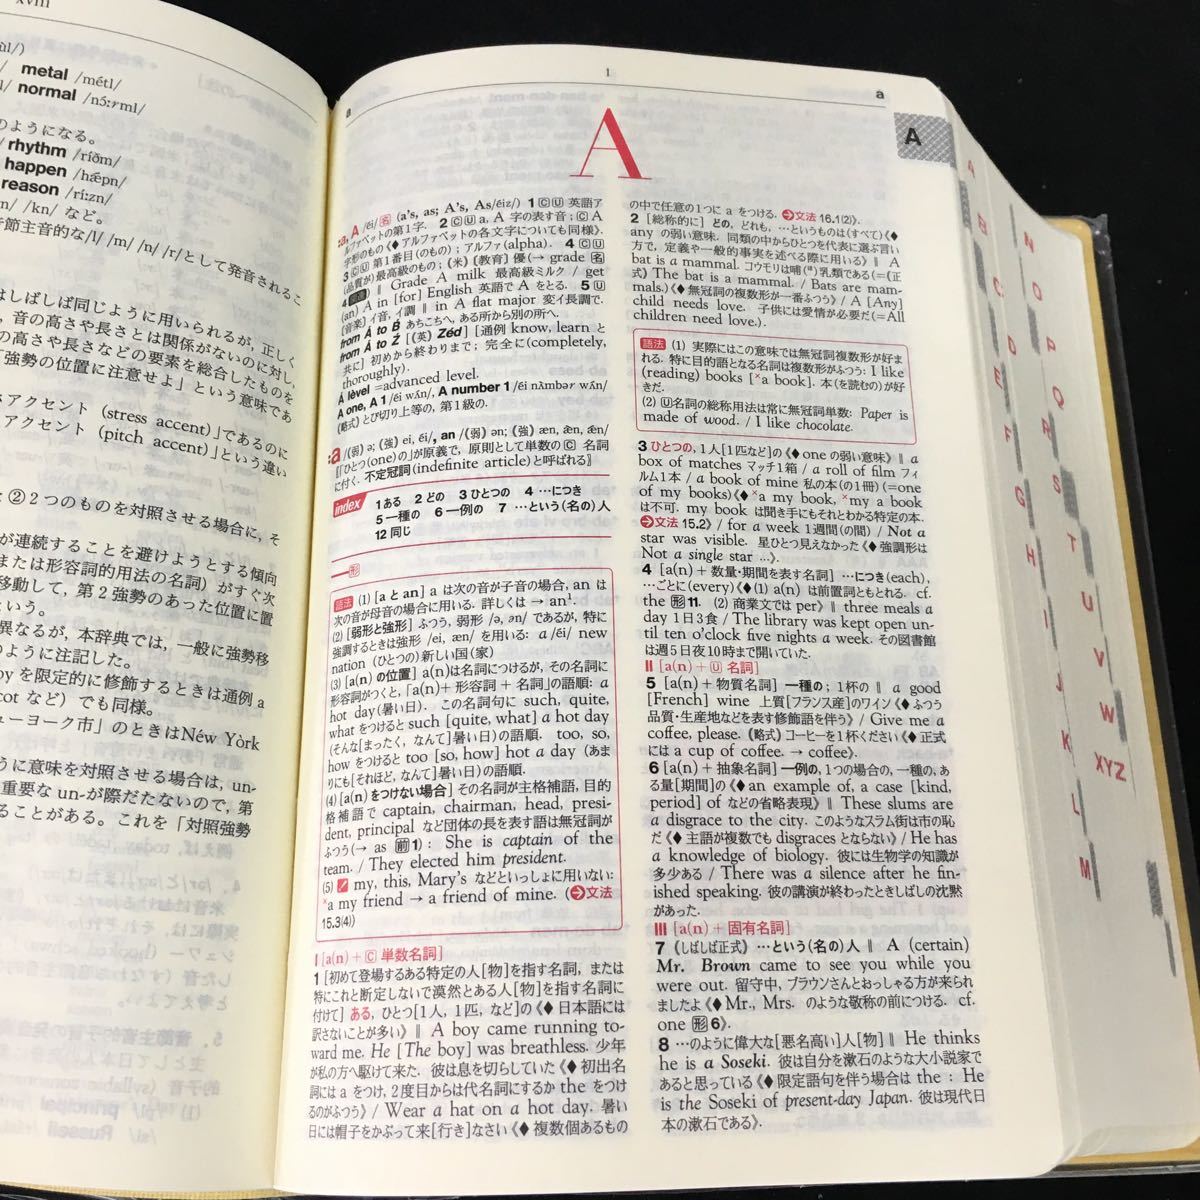 xviii
metal /métl/
normal /nɔ́ːrml/
のようになる。
rhythm /ríðm/
happen /hǽpn/
reason /ríːzn/
/kn/ など。
節主音的な/l/ /m/ /n/ /r/として発音されるこ
はしばしば同じように用いられるが, 正しく
, 音の高さや長さとは関係がないのに対し,
の高さや長さなどの要素を総合したものを
「強勢の位置に注意せよ」という意味であ
アクセント (stress accent)」であるのに
アクセント (pitch accent)」という違い
: ②2つのものを対照させる場合に, そ
が連続することを避けようとする傾向
または形容詞的用法の名詞) がすぐ次
移動して, 第2強勢のあった位置に置
という。
異なるが, 本辞典では, 一般に強勢移
のように注記した。
oy を限定的に修飾するときは通例 a
cot など) でも同様。
ューヨーク市」のときは Néw Yòrk
うに意味を対照させる場合は, un-
重要な un-が際だたないので, 第
ることがある。これを「対照強勢
1
a
a
A
A
:a, A /éi/ 名 (a's, as; A's, As/éiz/) 1 ⒸⓊ 英語ア
ルファベットの第1字. 2 ⒸⓊ a, A 字の表す音; Ⓒ A
字形のもの《◆アルファベットの各文字についても同様》.
3 ⒸⓊ 第1番目のもの; アルファ(alpha). 4 ⒸⓊ
(品質が)最高級のもの; 《米》〔教育〕優(→ grade 名
4) ‖ Grade A milk 最高級ミルク / get
(an) A in [for] English 英語で A をとる. 5 Ⓤ
〔音楽〕イ音, イ調 ‖ in A flat major 変イ長調で.
from A to B あちこちへ, ある所から別の所へ.
from A to Z [《英》Zéd] [通例 know, learn と
共に] 初めから終わりまで; 完全に(completely,
thoroughly).
A level =advanced level.
A one, A 1 /éi wʌ́n/, A number 1 /éi nʌ̀mbər wʌ́n/
《略式》とび切り上等の, 第1級の.
:a /(弱) ə; (強) ei, éi/, an /(弱) ən; (強) æn, ǽn, æn/
『「ひとつ(one)の」が原義で, 原則として単数のⒸ名詞
に付く. 不定冠詞(indefinite article)と呼ばれる』
index 1 ある 2 どの 3 ひとつの 4 …につき
5 一種の 6 一例の 7 …という(名の)人
12 同じ
―形
語法 (1) [a と an] a は次の音が子音の場合, an は
次の音が母音の場合に用いる. 詳しくは → an¹.
(2) [弱形と強形] ふつう, 弱形 /ə, ən/ であるが, 特に
強調するときは強形 /ei, æn/ を用いる: a /éi/ new
nation (ひとつの)新しい国(家)
(3) [a(n) の位置] a(n)は名詞につけるが, その名詞に
形容詞がつくと, 「a(n)+形容詞+名詞」の語順: a
hot day(暑い日). この名詞句に such, quite,
what をつけると such [quite, what] a hot day
(そんな[まったく, なんて]暑い日)の語順. too, so,
how をつけると too [so, how] hot a day (あま
りにも[それほど, なんて]暑い日)の語順.
(4) [a(n) をつけない場合] その名詞が主格補語, 目的
格補語で captain, chairman, head, presi-
dent, principal など団体の長を表す語は無冠詞が
ふつう(→ as 前1): She is captain of the
team. / They elected him president.
(5) my, this, Mary's などといっしょに用いない:
×a my friend → a friend of mine. (➔文法
15.3(4))
I [a(n)+Ⓒ 単数名詞]
1 [初めて登場するある特定の人[物]を指す名詞, または
特にこれと断定しないで漠然とある人[物]を指す名詞に
付けて] ある, ひとつ[1人, 1匹, など]の《◆日本語には
訳さないことが多い》 ‖ A boy came running to-
ward me. He [The boy] was breathless. 少年
が私の方へ駆けて来た. 彼は息を切らしていた《◆初出名
詞には a をつけ, 2度目からは代名詞にするか the をつけ
るのがふつう》 / Wear a hat on a hot day. 暑い
日には帽子をかぶって来[行き]なさい《◆複数個あるもの
の中で任意の1つに a をつける. ➔文法 16.1(2)》.
2 [総称的に] どの, どれも, …というものは(すべて)《◆
any の弱い意味. 同類の中からひとつを代表に選ぶ言い
方で, 定義や一般的事実を述べる際に用いる》 ‖ A
bat is a mammal. コウモリは哺(ﾎ)乳類である(=《正
式》The bat is a mammal. / Bats are mam-
mals.)《◆無冠詞の複数形が一番ふつう》 / A [Any]
child needs love. 子供には愛情が必要だ(=All
children need love.).
語法 (1) 実際にはこの意味では無冠詞複数形が好ま
れる. 特に目的語となる名詞は複数形がふつう: I like
(reading) books [×a book]. 本(を読むの)が好
きだ.
(2) Ⓤ名詞の総称用法は常に無冠詞単数: Paper is
made of wood. / I like chocolate.
3 ひとつの, 1人[1匹など]の《◆one の弱い意味》 ‖ a
box of matches マッチ1箱 / a roll of film フィ
ルム1本 / a book of mine 私の本(の1冊)(=one
of my books)《◆×a my book, ×my a book
は不可. my book は聞き手にもそれとわかる特定の本.
➔文法 15.2》 / for a week 1週間(の間) / Not a
star was visible. 星ひとつ見えなかった《◆強調形は
Not a single star …》.
4 [a(n)+数量・期間を表す名詞] …につき(each),
…ごとに(every)《◆(1) a(n) は前置詞ともとれる. cf.
the 形11. (2) 商業文では per》 ‖ three meals a
day 1日3食 / The library was kept open un-
til ten o'clock five nights a week. その図書館
は週5日夜10時まで開いていた.
II [a(n)+Ⓤ 名詞]
5 [a(n)+物質名詞] 一種の; 1杯の ‖ a good
[French] wine 上質[フランス産]のワイン《◆ふつう
品質・生産地などを表す修飾語を伴う》 / Give me a
coffee, please. 《略式》コーヒーを1杯ください《◆正式
には a cup of coffee. → coffee》.
6 [a(n)+抽象名詞] 一例の, 1つの場合の, 一種の, あ
る量[期間]の《◆an example of, a case [kind,
period] of などの省略表現》 ‖ These slums are
a disgrace to the city. このようなスラム街は市の恥
だ《◆主語が複数でも disgraces とならない》 / He has
a knowledge of biology. 彼には生物学の知識が
多少ある / There was a silence after he fin-
ished speaking. 彼の講演が終わったときしばしの沈黙
があった.
III [a(n)+固有名詞]
7 《しばしば正式》 …という(名の)人 ‖ A (certain)
Mr. Brown came to see you while you
were out. 留守中, ブラウンさんとおっしゃる方が来られ
ましたよ《◆Mr., Mrs. のような敬称の前につける. cf.
one 形6》.
8 …のように偉大な[悪名高い]人[物] ‖ He thinks
he is a Soseki. 彼は自分を漱石のような大小説家で
あると思っている《◆限定語句を伴う場合は the : He
is the Soseki of present-day Japan. 彼は現代日
本の漱石である》.
A
B
C
D
E
F
G
H
I
J
K
L
M
N
O
P
Q
R
S
T
U
V
W
XYZ